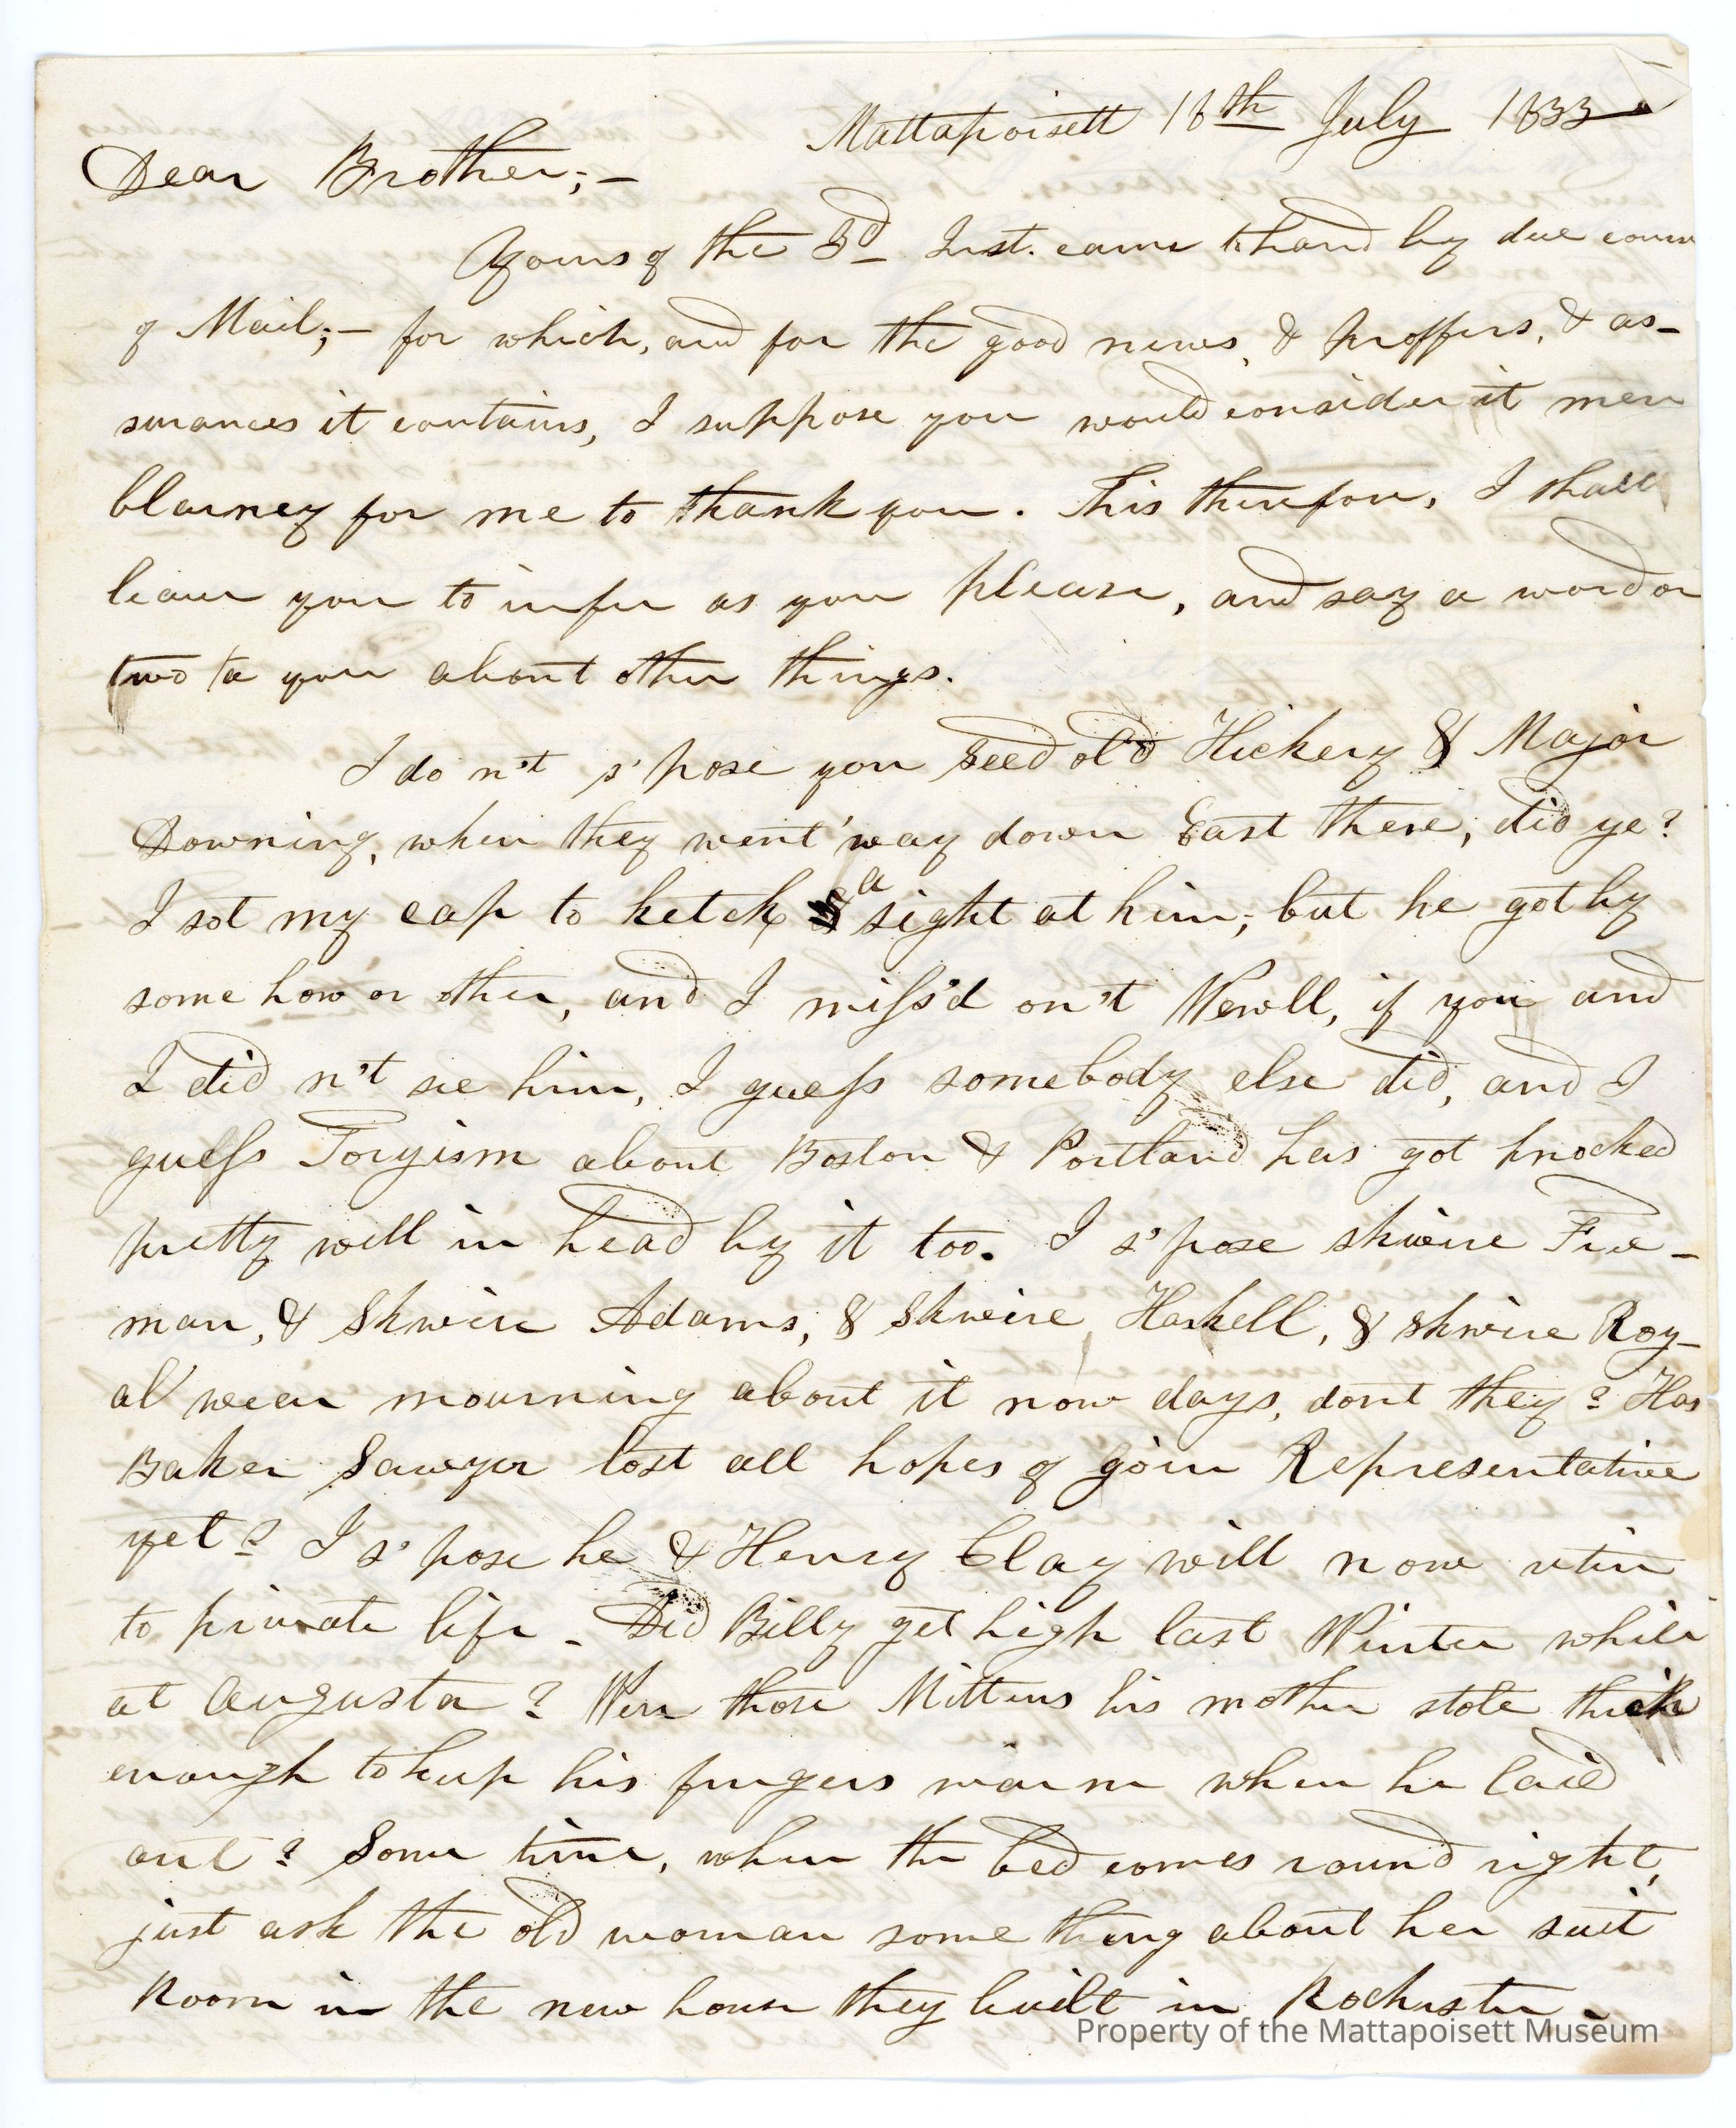 Mattapoisett 18th July 1833
Dear Brother;—
Yours of the 3d Inst. came to hand by due course
of Mail;— for which, and for the good news, & proffers, & as-
surances it contains, I suppose you would consider it mere
blarney for me to thank you. This therefore, I shall
leave you to infer as you please, and say a word or
two to you about other things.
I do n't s'pose you seed old Hickery & Major
Downing, when they went 'way down East there, did ye?
I sot my cap to ketch a sight at him; but he got by
some how or other, and I miss'd on't Wewll, if you and
I did n't see him, I guess somebody else did, and I
guess Toryism about Boston & Portland has got knocked
pretty well in head by it too. I s'pose skwire Free-
man, & Skwire Adams, & Skwire Haskell, & Skwire Roy-
al wear mourning about it now days, dont they? Has
Baker Sawyer lost all hopes of goin Representative
yet? I s'pose he & Henry Clay will now retire
to private life – Did Billy get high last Winter while
at Augusta? Were those Mittens his mother stole thick
enough to keep his fingers warm when he laid
out? Some time, when the bed comes round right,
just ask the old woman some thing about her suit
Room in the new house they built in Rochester –
Property of the Mattapoisett Museum